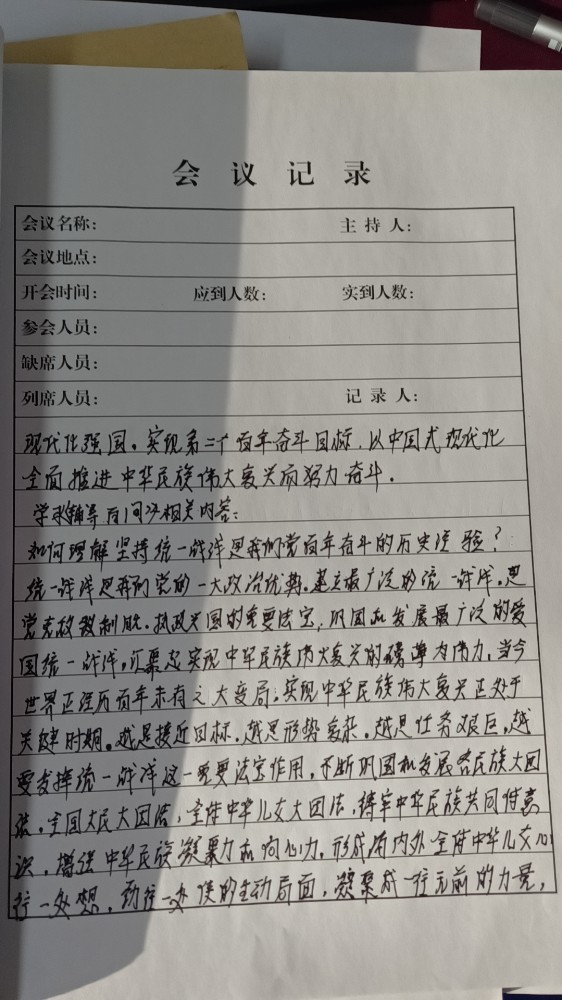 会 议 记 录
会议名称： 主 持 人：
会议地点：
开会时间： 应到人数： 实到人数：
参会人员：
缺席人员：
列席人员： 记 录 人：
现代化强国。实现第二个百年奋斗目标，以中国式现代化
全面推进中华民族伟大复兴而努力奋斗。
学习辅导百问涉相关内容：
如何理解坚持统一战线是我们党百年奋斗的历史经验？
统一战线是我们党的一大政治优势。建立最广泛的统一战线，是
党克敌致制胜、执政兴国的重要法宝，巩固和发展最广泛的爱
国统一战线，汇聚起实现中华民族伟大复兴的磅礴为伟力。当今
世界正经历百年未有之大变局，实现中华民族伟大复兴正处于
关键时期。越是接近目标，越是形势复杂，越是任务艰巨，越
要发挥统一战线这一重要法宝作用，不断巩固和发展各民族大团
结，全国人民大团结，全体中华儿女大团结，铸牢中华民族共同体意
识，增强中华民族凝聚力和向心力，形成海内外全体中华儿女心
往一处想，劲往一处使的生动局面，凝聚成一往无前的力量，